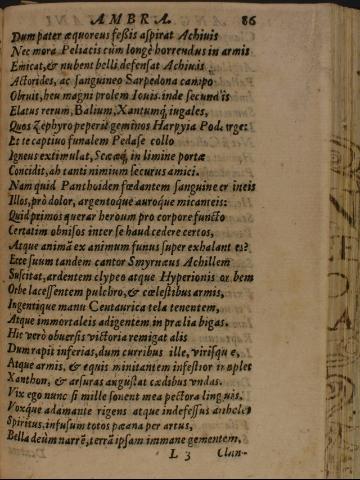 AMBRA. 86
Dum pater æquoreus feßis aspirat Achiuis
Nec mora Peliacis cùm longè horrendus in armis
Emicat, & nubent belli defensat Achiuis
Actorides, ac sanguineo Sarpedona campo
Obruit, heu magni prolem Iouis. inde secundis
Elatus rerum, Balium, Xantumq́, iugales,
Quos Zephyro peperit geminos Harpyia Podarge:
Et te captiuo funalem Pedase collo
Igneus extimulat, Scææq́, in limine portæ
Concidit, ah tanti nimium securus amici.
Nam quid Panthoiden fœdantem sanguine crineis
Illos, prò dolor, argentoque auroque micanteis:
Quid primos querar heroum pro corpore functo
Certatim obnisos inter se haud cedere certos,
Atque animã ex animum funus super exhalantes?
Ecce suum tandem cantor Smyrnæus Achillem
Suscitat, ardentem clypeo atque Hyperionis orbem
Orbe lacessentem pulchro, & cœlestibus armis,
Ingentique manu Centaurica tela tenentem,
Atque immortaleis adigentem in prælia bigas.
Hic verò obuersis victoria remigat alis
Dum rapit inferias, dum curribus ille, virisque,
Atque armis, & equis minitantem infestior implet
Xanthon, & arsuras augustat cædibus vndas.
Vix ego nunc si mille sonent mea pectora linguis,
Voxque adamante rigens atque indefessus anheles
Spiritus, infusum totos pæana per artus,
Bella deùm narrẽ, terrã ipsam immane gementem,
L 3 Clan-